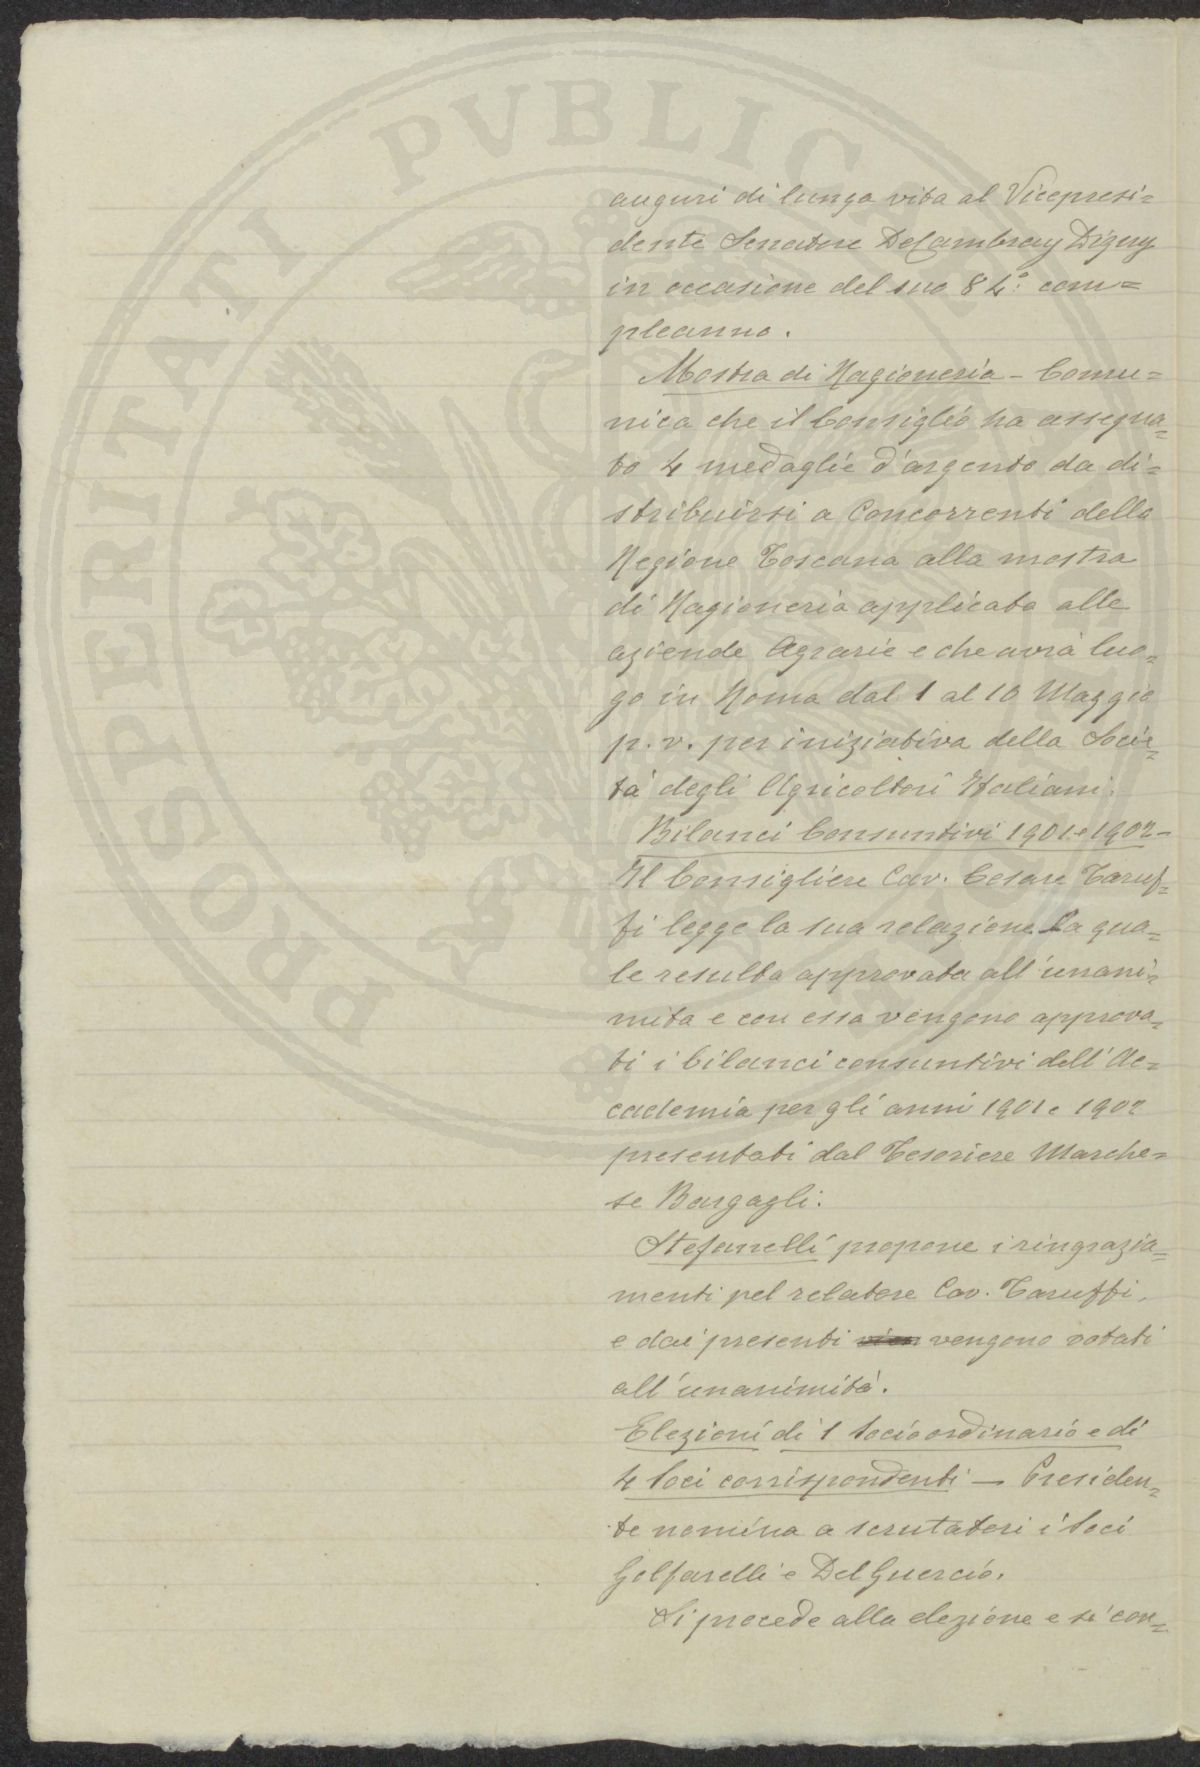 PROSPERITATI PVBLIC
auguri di lunga vita al Vicepresi=
dente Senatore DeCambray Digny
in occasione del suo 84° com=
pleanno.
Mostra di Ragioneria - Comu=
nica che il Consiglio ha assegna=
to 4 medaglie d'argento da di=
stribuirsi a Concorrenti della
Regione Toscana alla mostra
di Ragioneria applicata alle
aziende Agrarie e che avrà luo=
go in Roma dal 1 al 10 Maggio
p. v. per iniziativa della Socie=
tà degli Agricoltori Italiani.
Bilanci Consuntivi 1901 e 1902 -
Il Consigliere Cav. Cesare Taruf=
fi legge la sua relazione. La qua=
le resulta approvata all'unani=
mità e con essa vengono approva=
ti i bilanci consuntivi dell'Ac=
cademia per gli anni 1901 e 1902
presentati dal Tesoriere Marche=
se Bargagli.
Stefanelli propone i ringrazia=
menti pel relatore Cav. Taruffi,
e dai presenti vien vengono votati
all'unanimità.
Elezioni di 1 Socio ordinario e di
4 Soci corrispondenti - Presiden=
te nomina a scrutatori i Soci
Golfarelli e Del Guercio.
Si procede alla elezione e si con=